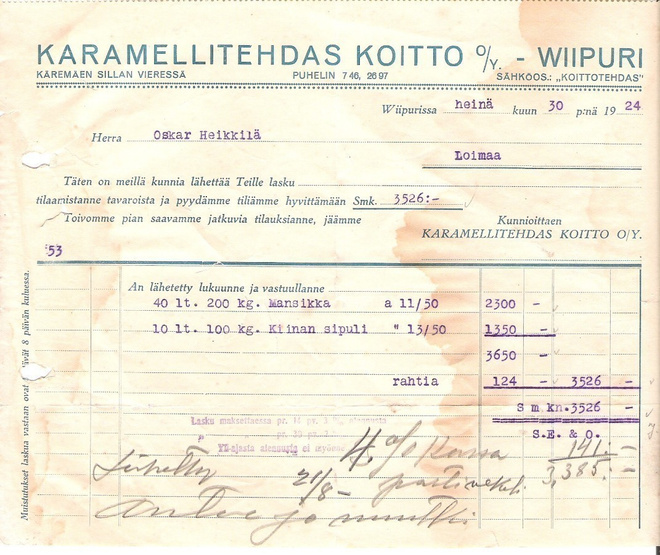 KARAMELLITEHDAS KOITTO O/Y. - WIIPURI
KÄREMÄEN SILLAN VIERESSÄ PUHELIN 7 46, 26 97 SÄHKÖOS.: „KOITTOTEHDAS"
Wiipurissa heinä kuun 30 p:nä 1924
Herra Oskar Heikkilä
Loimaa
Täten on meillä kunnia lähettää Teille lasku
tilaamistanne tavaroista ja pyydämme tiliämme hyvittämään Smk. 3526:-
Toivomme pian saavamme jatkuvia tilauksianne, jäämme Kunnioittaen
KARAMELLITEHDAS KOITTO O/Y.
53
An lähetetty lukuunne ja vastuullanne
40 lt. 200 kg. Mansikka a 11/50 2300 -
10 lt. 100 kg. Kiinan sipuli " 13/50 1350 -
3650 -
rahtia 124 - 3526 -
Smkn.3526 -
S.E. & O.
Lasku maksettaessa pr. 14 pv. 3 %, alennusta
pr. 30 pv.
Yli-ajasta alennusta ei myönnetä
4 % Kassa 141:-
Lähetty 21/8- 3,385:-
ja
Muistutukset laskua vastaan ovat 8 päivän kuluessa.